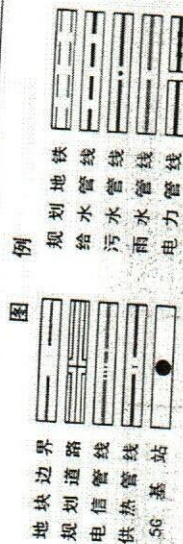 图例
地块边界
规划道路
电信管线
供热管线
5G基站
规划地铁
给水管线
污水管线
雨水管线
电力管线